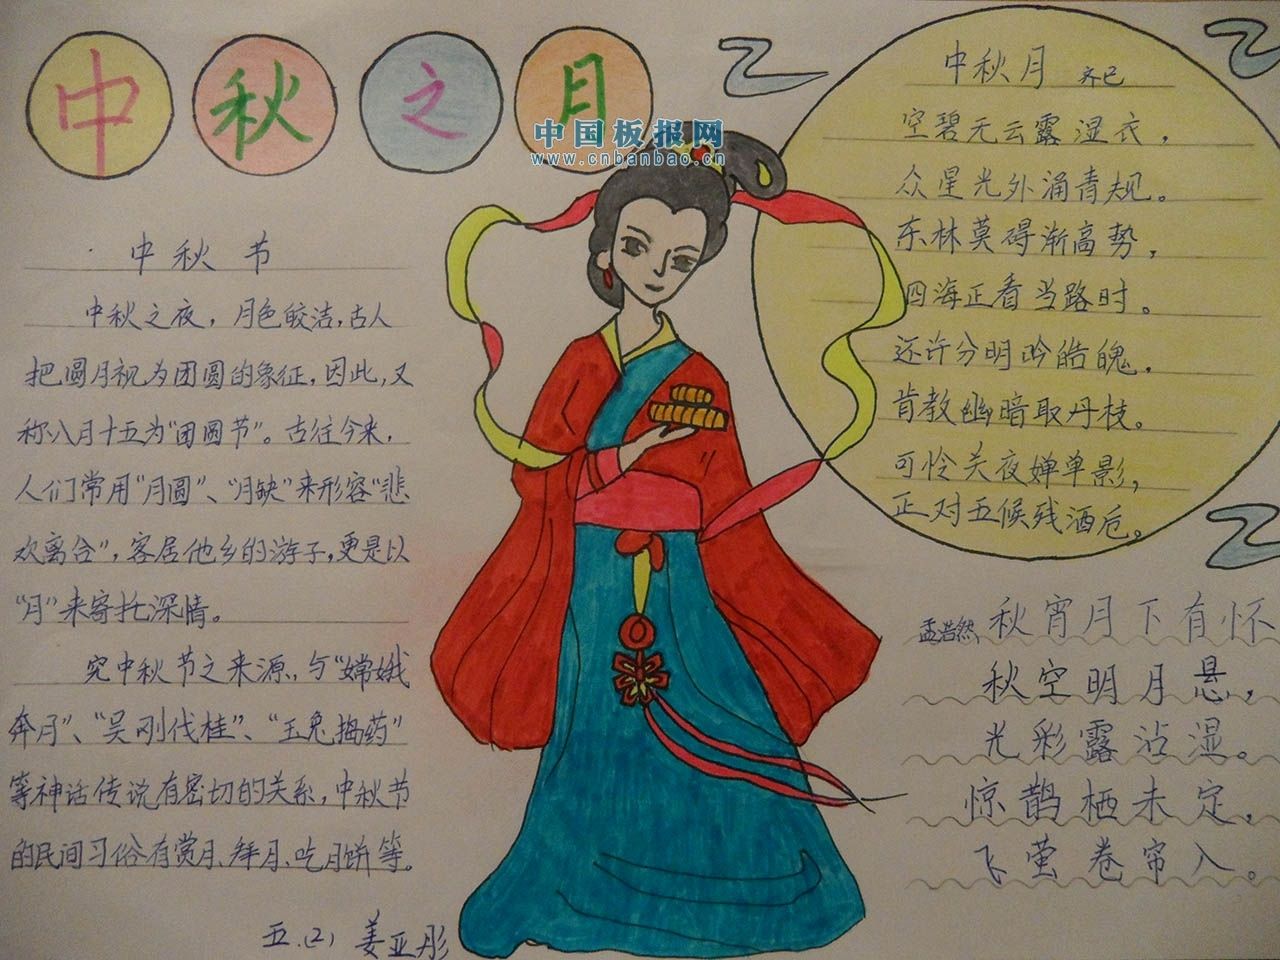 中秋之月
中国板报网
www.cnbanbao.cn
中秋节
中秋之夜，月色皎洁，古人
把圆月视为团圆的象征，因此，又
称八月十五为“团圆节”。古往今来，
人们常用“月圆”、“月缺”来形容“悲
欢离合”，客居他乡的游子，更是以
“月”来寄托深情。
究中秋节之来源，与“嫦娥
奔月”、“吴刚伐桂”、“玉兔捣药”
等神话传说有密切的关系，中秋节
的民间习俗有赏月、拜月、吃月饼等。
五.(2) 姜亚彤
中秋月 齐已
空碧无云露湿衣，
众星光外涌青规。
东林莫碍渐高势，
四海正看当路时。
还许分明吟皓魄，
肯教幽暗取丹枝。
可怜关夜婵单影，
正对五候残酒卮。
孟浩然 秋宵月下有怀
秋空明月悬，
光彩露沾湿。
惊鹊栖未定，
飞萤卷帘入。